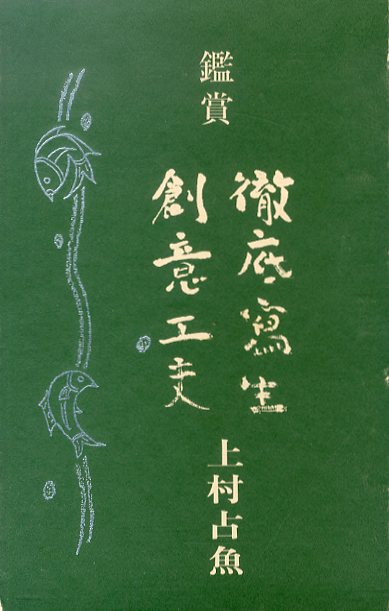 鑑賞
徹底寫生
創意工夫
上村占魚